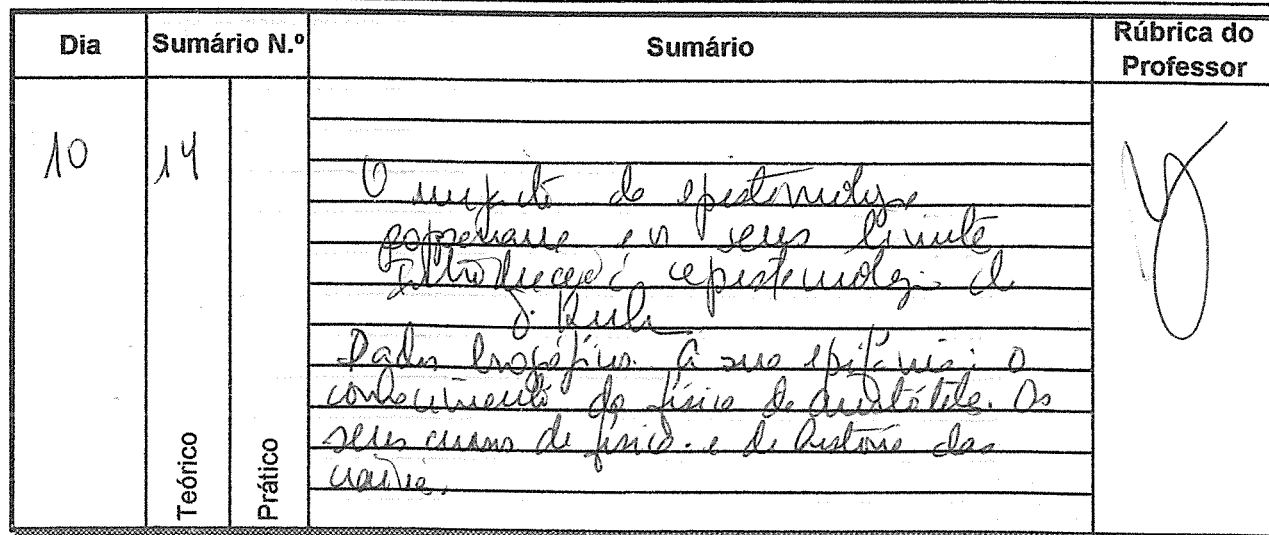 Dia Sumário N.º Sumário Rúbrica do Professor
10 14
O impacto da epistemologia
popperiana e os seus limites
Introdução à epistemologia de
T. Kuhn
Dados biográficos. A sua epifania: o
conhecimento da física de Aristóteles. Os
seus cursos de física e de história das
ciências.
Teórico
Prático